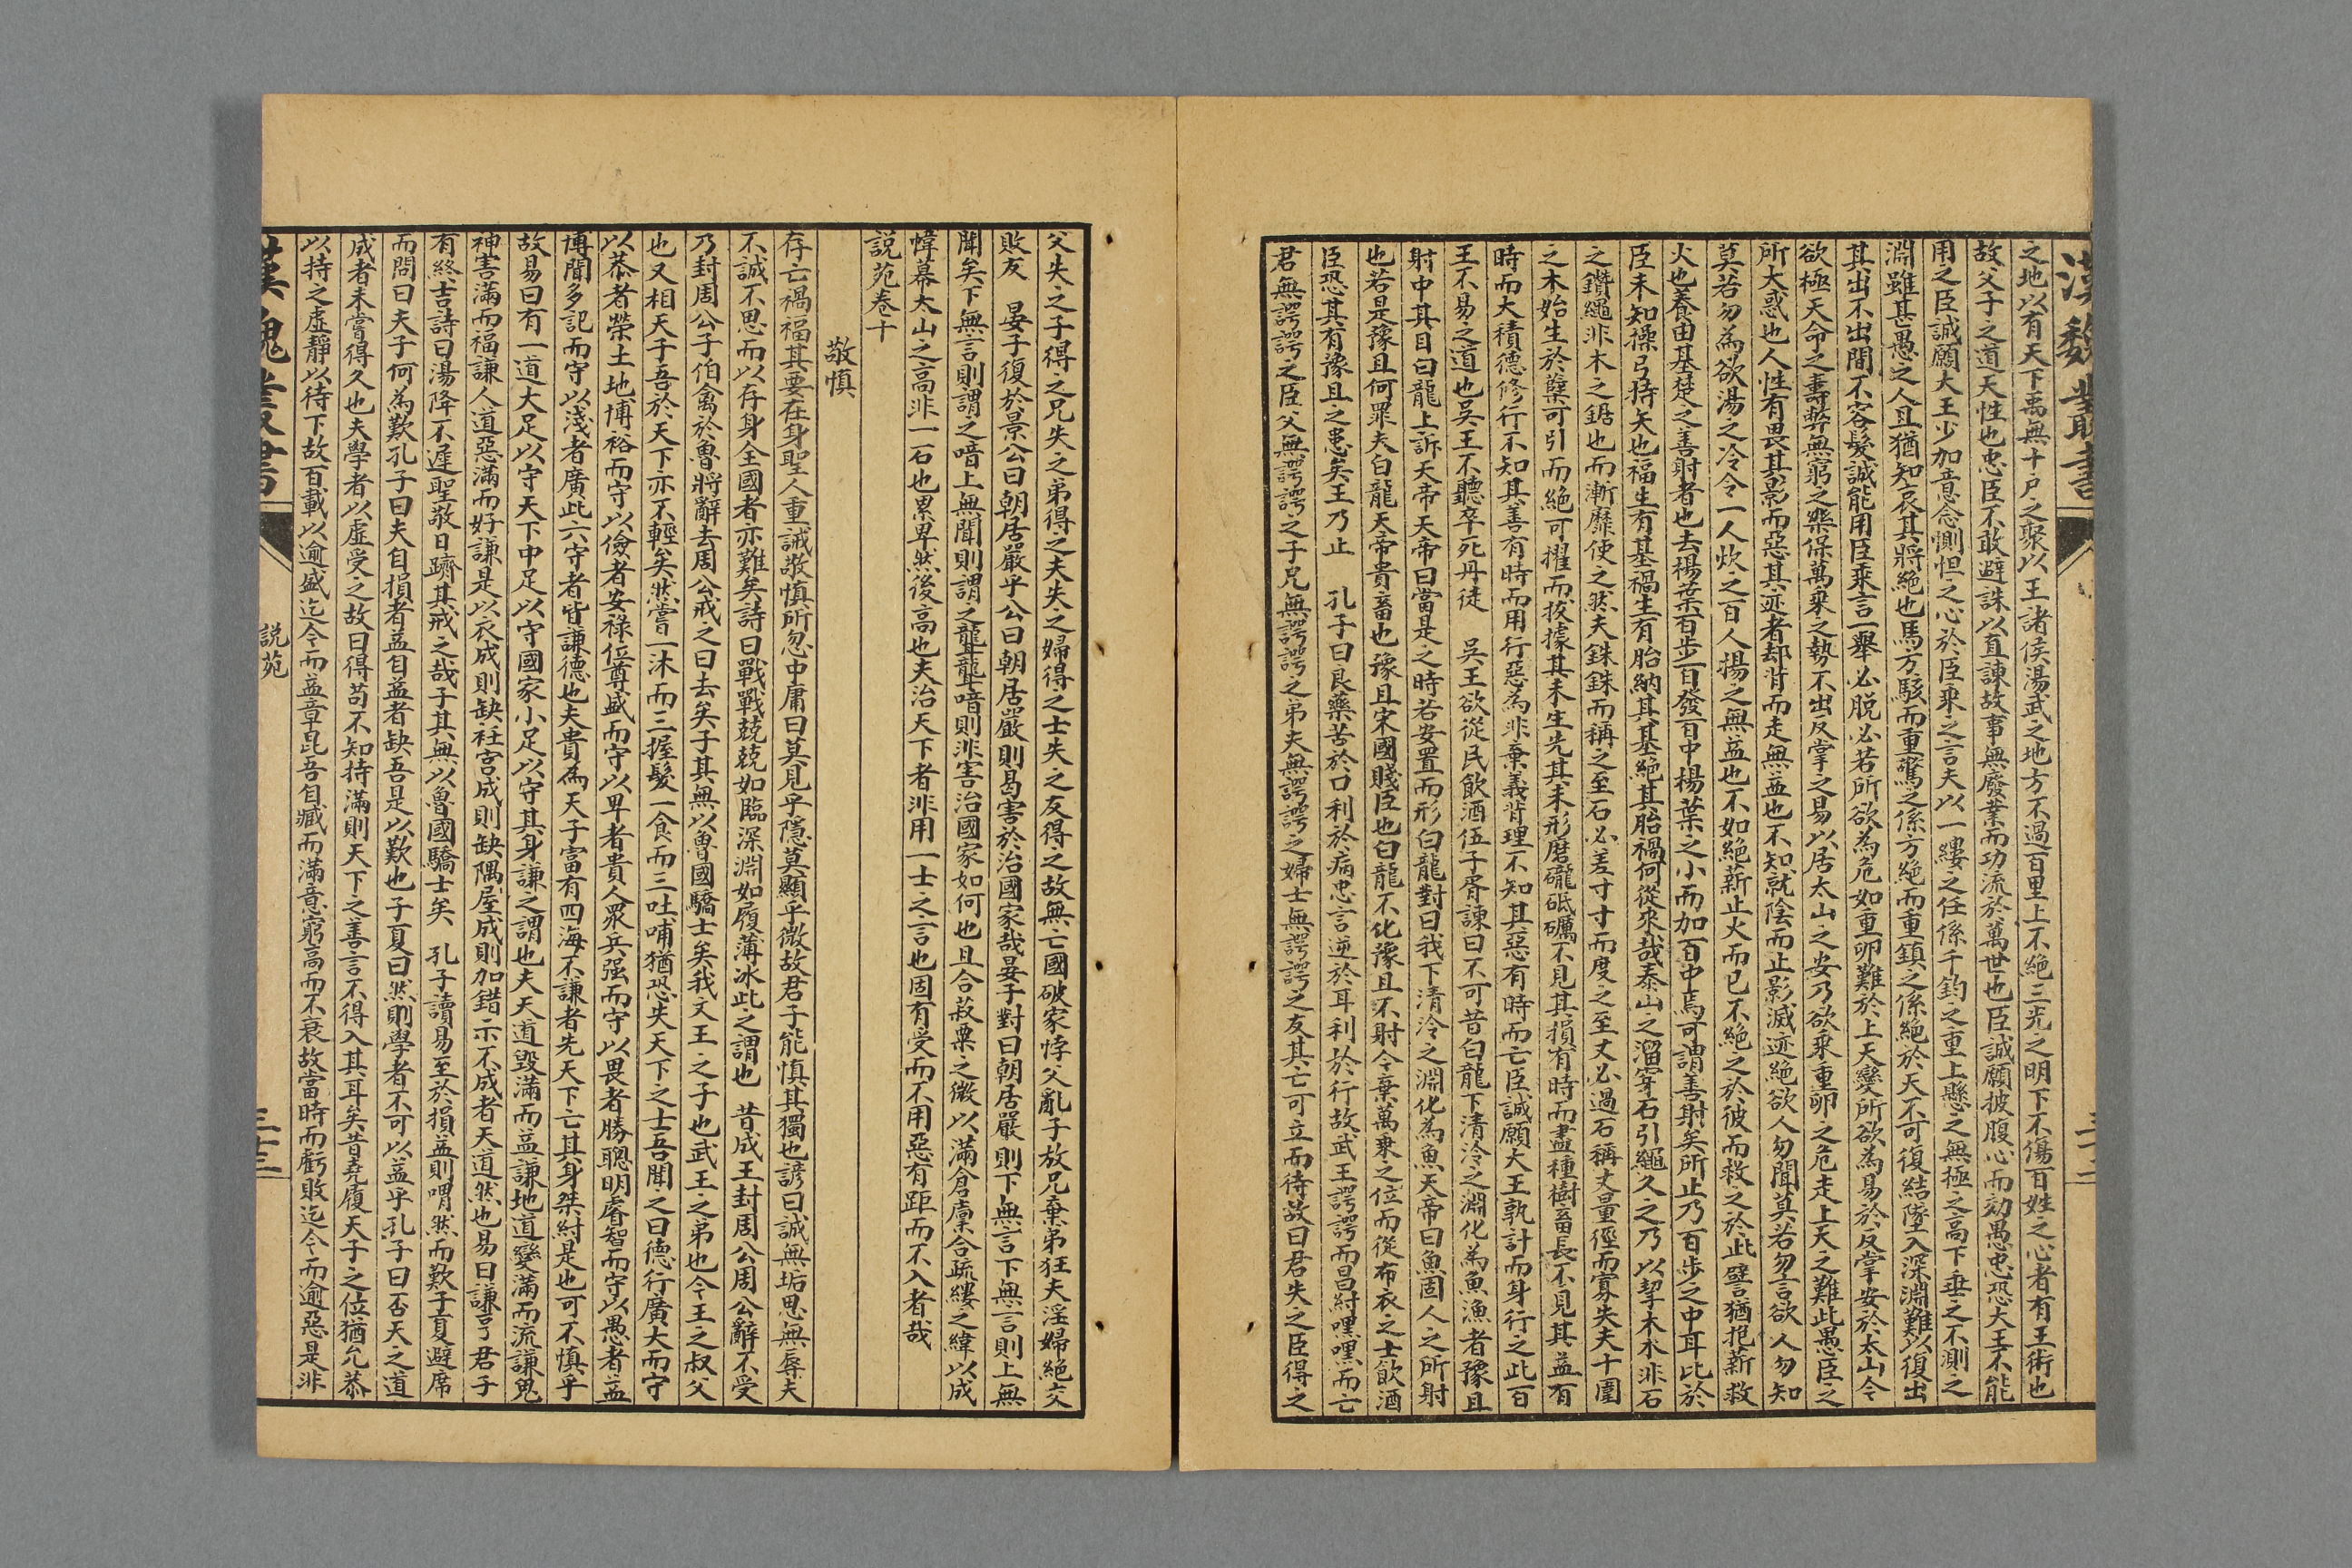 漢魏叢書
之地以有天下禹無十戶之聚以王諸侯湯武之地方不過百里上不絕三光之明下不傷百姓之心者有王術也
故父子之道天性也忠臣不敢避誅以直諫故事無廢業而功流於萬世也臣誠願披腹心而効愚忠恐大王不能
用之臣誠願大王少加意念惻怛之心於臣乘之言夫以一縷之任係千鈞之重上懸之無極之高下垂之不測之
淵雖甚愚之人且猶知哀其將絕也馬方駭而重驚之係方絕而重鎮之係絕於天不可復結墜入深淵難以復出
其出不出間不容髮誠能用臣乘言一舉必脫必若所欲為危如重卵難於上天變所欲為易於反掌安於太山今
欲極天命之壽弊無窮之樂保萬乘之勢不出反掌之易以居太山之安乃欲乘重卵之危走上天之難此愚臣之
所大惑也人性有畏其影而惡其迹者却背而走無益也不知就陰而止影滅迹絕欲人勿聞莫若勿言欲人勿知
莫若勿為欲湯之冷令一人炊之百人揚之無益也不如絕薪止火而已不絕之於彼而救之於此譬猶抱薪救
火也養由基楚之善射者也去楊葉百步百發百中楊葉之小而加百中焉可謂善射矣所止乃百步之中耳比於
臣未知操弓持矢也福生有基禍生有胎納其基絕其胎禍何從來哉泰山之溜穿石引繩久之乃以挈木水非石
之鑽繩非木之鋸也而漸靡使之然夫銖銖而稱之至石必差寸寸而度之至丈必過石稱丈量徑而寡失夫十圍
之木始生於蘖可引而絕可擢而拔據其未生先其未形磨礲砥礪不見其損有時而盡種樹畜長不見其益有
時而大積德修行不知其善有時而用行惡為非棄義背理不知其惡有時而亡臣誠願大王孰計而身行之此百
王不易之道也吳王不聽卒死丹徒　吳王欲從民飲酒伍子胥諫曰不可昔白龍下清泠之淵化為魚漁者豫且
射中其目白龍上訴天帝天帝曰當是之時若安置而形白龍對曰我下清泠之淵化為魚天帝曰魚固人之所射
也若是豫且何罪夫白龍天帝貴畜也豫且宋國賤臣也白龍不化豫且不射今棄萬乘之位而從布衣之士飲酒
臣恐其有豫且之患矣王乃止　孔子曰良藥苦於口利於病忠言逆於耳利於行故武王諤諤而昌紂嘿嘿而亡
君無諤諤之臣父無諤諤之子兄無諤諤之弟夫無諤諤之婦士無諤諤之友其亡可立而待故曰君失之臣得之
父失之子得之兄失之弟得之夫失之婦得之士失之友得之故無亡國破家悖父亂子放兄棄弟狂夫淫婦絕交
敗友　晏子復於景公曰朝居嚴乎公曰朝居嚴則曷害於治國家哉晏子對曰朝居嚴則下無言下無言則上無
聞矣下無言則謂之喑上無聞則謂之聾聾喑則非害治國家如何也且合菽粟之微以滿倉廩合疏縷之緯以成
幃幕太山之高非一石也累卑然後高也夫治天下者非用一士之言也固有受而不用惡有距而不入者哉
說苑卷十
敬慎
存亡禍福其要在身聖人重誡敬慎所忽中庸曰莫見乎隱莫顯乎微故君子能慎其獨也諺曰誠無垢思無辱夫
不誠不思而以存身全國者亦難矣詩曰戰戰兢兢如臨深淵如履薄冰此之謂也　昔成王封周公周公辭不受
乃封周公子伯禽於魯將辭去周公戒之曰去矣子其無以魯國驕士矣我文王之子也武王之弟也今王之叔父
也又相天子吾於天下亦不輕矣然嘗一沐而三握髮一食而三吐哺猶恐失天下之士吾聞之曰德行廣大而守
以恭者榮土地博裕而守以儉者安祿位尊盛而守以卑者貴人眾兵强而守以畏者勝聰明睿智而守以愚者益
博聞多記而守以淺者廣此六守者皆謙德也夫貴為天子富有四海不謙者先天下亡其身桀紂是也可不慎乎
故易曰有一道大足以守天下中足以守國家小足以守其身謙之謂也夫天道毀滿而益謙地道變滿而流謙鬼
神害滿而福謙人道惡滿而好謙是以衣成則缺衽宮成則缺隅屋成則加錯示不成者天道然也易曰謙亨君子
有終吉詩曰湯降不遲聖敬日躋其戒之哉子其無以魯國驕士矣　孔子讀易至於損益則喟然而歎子夏避席
而問曰夫子何為歎孔子曰夫自損者益自益者缺吾是以歎也子夏曰然則學者不可以益乎孔子曰否天之道
成者未嘗得久也夫學者以虛受之故曰得苟不知持滿則天下之善言不得入其耳矣昔堯履天子之位猶允恭
以持之虛靜以待下故百載以逾盛迄今而益章昆吾自臧而滿意窮高而不衰故當時而虧敗迄今而逾惡是非
漢魏叢書
說苑
三十三